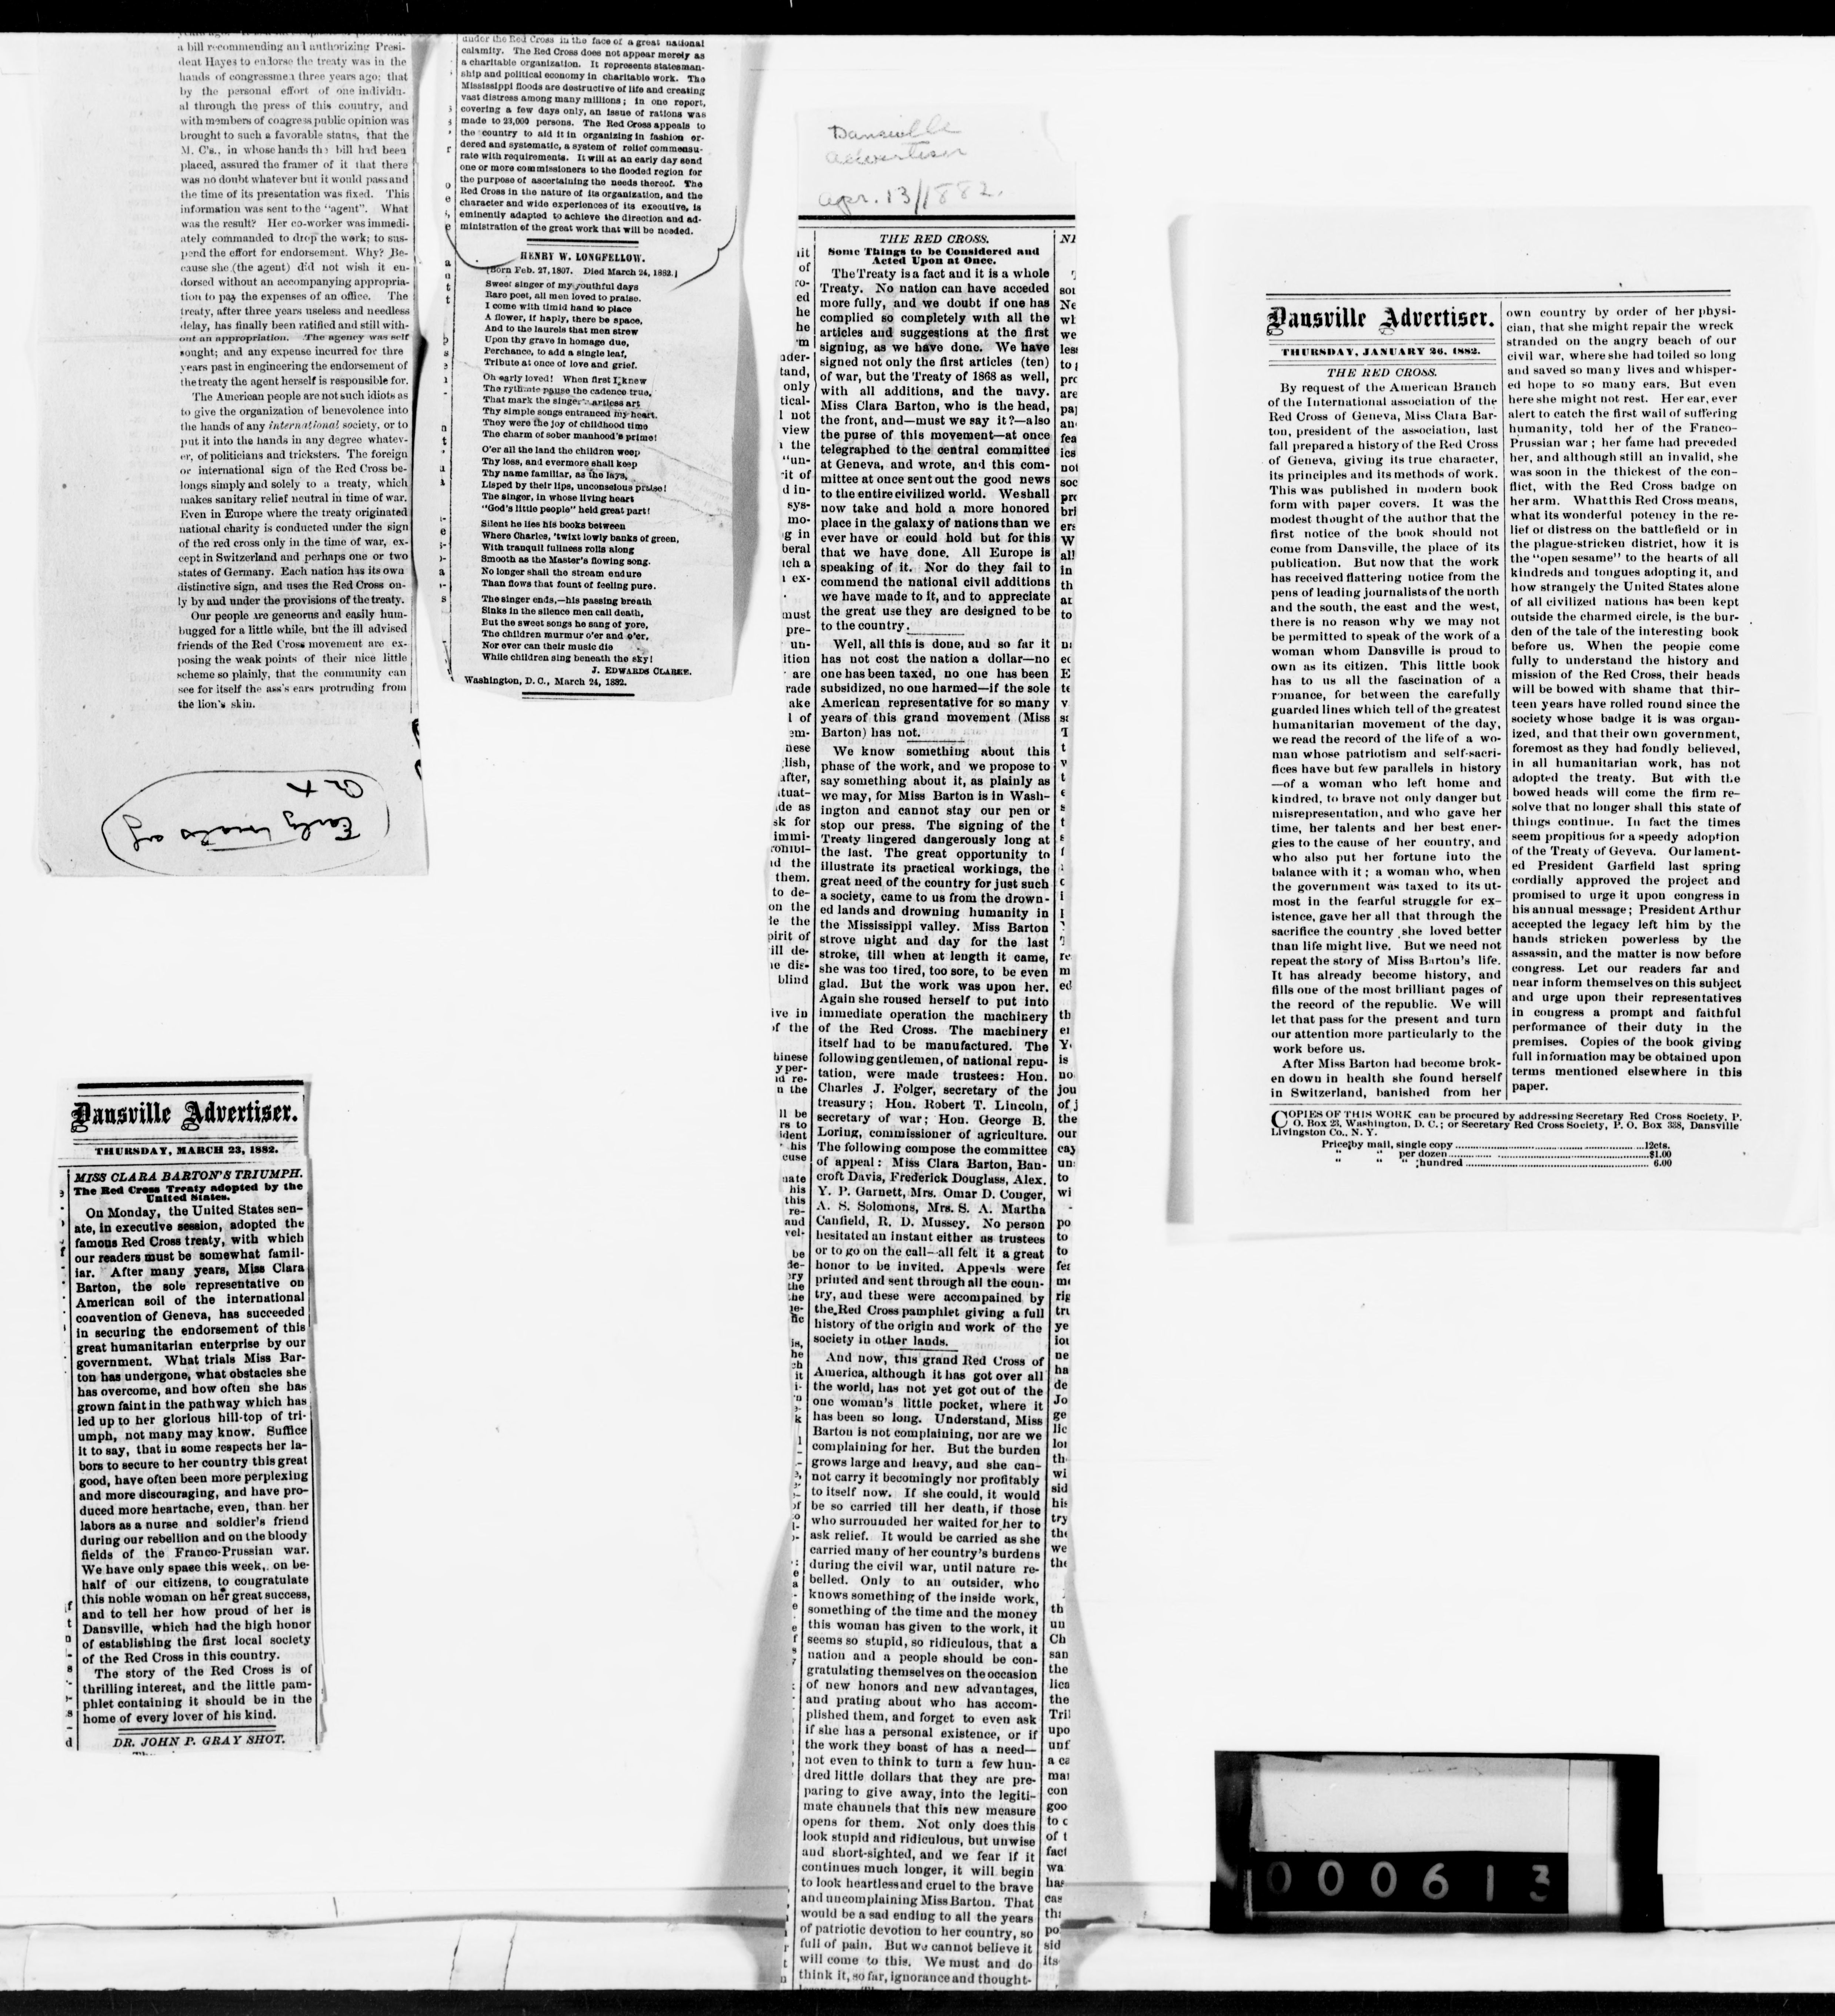 a bill recommending and authorizing Presi-
dent Hayes to endorse the treaty was in the
hands of congressmen three years ago; that
by the personal effort of one individu-
al through the press of this country, and
with members of congress public opinion was
brought to such a favorable status, that the
M. C's., in whose hands the bill had been
placed, assured the framer of it that there
was no doubt whatever but it would pass and
the time of its presentation was fixed. This
information was sent to the "agent". What
was the result? Her co-worker was immedi-
ately commanded to drop the work; to sus-
pend the effort for endorsement. Why? Be-
cause she (the agent) did not wish it en-
dorsed without an accompanying appropria-
tion to pay the expenses of an office. The
treaty, after three years useless and needless
delay, has finally been ratified and still with-
out an appropriation. The agency was self
sought; and any expense incurred for thre
years past in engineering the endorsement of
the treaty the agent herself is responsible for.
The American people are not such idiots as
to give the organization of benevolence into
the hands of any international society, or to
put it into the hands in any degree whatev-
er, of politicians and tricksters. The foreign
or international sign of the Red Cross be-
longs simply and solely to a treaty, which
makes sanitary relief neutral in time of war.
Even in Europe where the treaty originated
national charity is conducted under the sign
of the red cross only in the time of war, ex-
cept in Switzerland and perhaps one or two
states of Germany. Each nation has its own
distinctive sign, and uses the Red Cross on-
ly by and under the provisions of the treaty.
Our people are geneorus and easily hum-
bugged for a little while, but the ill advised
friends of the Red Cross movement are ex-
posing the weak points of their nice little
scheme so plainly, that the community can
see for itself the ass's ears protruding from
the lion's skin.
under the Red Cross in the face of a great national
calamity. The Red Cross does not appear merely as
a charitable organization. It represents statesman-
ship and political economy in charitable work. The
Mississippi floods are destructive of life and creating
vast distress among many millions; in one report,
covering a few days only, an issue of rations was
made to 23,000 persons. The Red Cross appeals to
the country to aid it in organizing in fashion or-
dered and systematic, a system of relief commensu-
rate with requirements. It will at an early day send
one or more commissioners to the flooded region for
the purpose of ascertaining the needs thereof. The
Red Cross in the nature of its organization, and the
character and wide experiences of its executive, is
eminently adapted to achieve the direction and ad-
ministration of the great work that will be needed.
HENRY W. LONGFELLOW.
(Born Feb. 27, 1807. Died March 24, 1882.)
Sweet singer of my youthful days
Rare poet, all men loved to praise.
I come with timid hand to place
A flower, if haply, there be space,
And to the laurels that men strew
Upon thy grave in homage due,
Perchance, to add a single leaf,
Tribute at once of love and grief.
Oh early loved! When first I knew
The rythmic pause the cadence true,
That mark the singer's artless art
Thy simple songs entranced my heart.
They were the joy of childhood time
The charm of sober manhood's prime!
O'er all the land the children weep
Thy loss, and evermore shall keep
Thy name familiar, as the lays,
Lisped by their lips, unconscious praise!
The singer, in whose living heart
"God's little people" held great part!
Silent he lies his books between
Where Charles, 'twixt lowly banks of green,
With tranquil fullness rolls along
Smooth as the Master's flowing song.
No longer shall the stream endure
Than flows that fount of feeling pure.
The singer ends,—his passing breath
Sinks in the silence men call death,
But the sweet songs he sang of yore,
The children murmur o'er and o'er,
Nor ever can their music die
While children sing beneath the sky!
J. EDWARDS CLARKE.
Washington, D. C., March 24, 1882.
Dansville Advertiser.
THURSDAY, MARCH 23, 1882.
MISS CLARA BARTON'S TRIUMPH.
The Red Cross Treaty adopted by the
United States.
On Monday, the United States sen-
ate, in executive session, adopted the
famous Red Cross treaty, with which
our readers must be somewhat famil-
iar. After many years, Miss Clara
Barton, the sole representative on
American soil of the international
convention of Geneva, has succeeded
in securing the endorsement of this
great humanitarian enterprise by our
government. What trials Miss Bar-
ton has undergone, what obstacles she
has overcome, and how often she has
grown faint in the pathway which has
led up to her glorious hill-top of tri-
umph, not many may know. Suffice
it to say, that in some respects her la-
bors to secure to her country this great
good, have often been more perplexing
and more discouraging, and have pro-
duced more heartache, even, than her
labors as a nurse and soldier's friend
during our rebellion and on the bloody
fields of the Franco-Prussian war.
We have only space this week, on be-
half of our citizens, to congratulate
this noble woman on her great success,
and to tell her how proud of her is
Dansville, which had the high honor
of establishing the first local society
of the Red Cross in this country.
The story of the Red Cross is of
thrilling interest, and the little pam-
phlet containing it should be in the
home of every lover of his kind.
DR. JOHN P. GRAY SHOT.
Dansville
Advertiser
Apr. 13/1882.
THE RED CROSS.
Some Things to be Considered and
Acted Upon at Once.
The Treaty is a fact and it is a whole
Treaty. No nation can have acceded
more fully, and we doubt if one has
complied so completely with all the
articles and suggestions at the first
signing, as we have done. We have
signed not only the first articles (ten)
of war, but the Treaty of 1868 as well,
with all additions, and the navy.
Miss Clara Barton, who is the head,
the front, and—must we say it?—also
the purse of this movement—at once
telegraphed to the central committee
at Geneva, and wrote, and this com-
mittee at once sent out the good news
to the entire civilized world. We shall
now take and hold a more honored
place in the galaxy of nations than we
ever have or could hold but for this
that we have done. All Europe is
speaking of it. Nor do they fail to
commend the national civil additions
we have made to it, and to appreciate
the great use they are designed to be
to the country.
Well, all this is done, and so far it
has not cost the nation a dollar—no
one has been taxed, no one has been
subsidized, no one harmed—if the sole
American representative for so many
years of this grand movement (Miss
Barton) has not.
We know something about this
phase of the work, and we propose to
say something about it, as plainly as
we may, for Miss Barton is in Wash-
ington and cannot stay our pen or
stop our press. The signing of the
Treaty lingered dangerously long at
the last. The great opportunity to
illustrate its practical workings, the
great need of the country for just such
a society, came to us from the drown-
ed lands and drowning humanity in
the Mississippi valley. Miss Barton
strove night and day for the last
stroke, till when at length it came,
she was too tired, too sore, to be even
glad. But the work was upon her.
Again she roused herself to put into
immediate operation the machinery
of the Red Cross. The machinery
itself had to be manufactured. The
following gentlemen, of national repu-
tation, were made trustees: Hon.
Charles J. Folger, secretary of the
treasury; Hon. Robert T. Lincoln,
secretary of war; Hon. George B.
Loring, commissioner of agriculture.
The following compose the committee
of appeal: Miss Clara Barton, Ban-
croft Davis, Frederick Douglass, Alex.
Y. P. Garnett, Mrs. Omar D. Conger,
A. S. Solomons, Mrs. S. A. Martha
Canfield, R. D. Mussey. No person
hesitated an instant either as trustees
or to go on the call—all felt it a great
honor to be invited. Appeals were
printed and sent through all the coun-
try, and these were accompained by
the Red Cross pamphlet giving a full
history of the origin and work of the
society in other lands.
And now, this grand Red Cross of
America, although it has got over all
the world, has not yet got out of the
one woman's little pocket, where it
has been so long. Understand, Miss
Barton is not complaining, nor are we
complaining for her. But the burden
grows large and heavy, and she can-
not carry it becomingly nor profitably
to itself now. If she could, it would
be so carried till her death, if those
who surrounded her waited for her to
ask relief. It would be carried as she
carried many of her country's burdens
during the civil war, until nature re-
belled. Only to an outsider, who
knows something of the inside work,
something of the time and the money
this woman has given to the work, it
seems so stupid, so ridiculous, that a
nation and a people should be con-
gratulating themselves on the occasion
of new honors and new advantages,
and prating about who has accom-
plished them, and forget to even ask
if she has a personal existence, or if
the work they boast of has a need—
not even to think to turn a few hun-
dred little dollars that they are pre-
paring to give away, into the legiti-
mate channels that this new measure
opens for them. Not only does this
look stupid and ridiculous, but unwise
and short-sighted, and we fear if it
continues much longer, it will begin
to look heartless and cruel to the brave
and uncomplaining Miss Barton. That
would be a sad ending to all the years
of patriotic devotion to her country, so
full of pain. But we cannot believe it
will come to this. We must and do
think it, so far, ignorance and thought-
Dansville Advertiser.
THURSDAY, JANUARY 26, 1882.
THE RED CROSS.
By request of the American Branch
of the International association of the
Red Cross of Geneva, Miss Clara Bar-
ton, president of the association, last
fall prepared a history of the Red Cross
of Geneva, giving its true character,
its principles and its methods of work.
This was published in modern book
form with paper covers. It was the
modest thought of the author that the
first notice of the book should not
come from Dansville, the place of its
publication. But now that the work
has received flattering notice from the
pens of leading journalists of the north
and the south, the east and the west,
there is no reason why we may not
be permitted to speak of the work of a
woman whom Dansville is proud to
own as its citizen. This little book
has to us all the fascination of a
romance, for between the carefully
guarded lines which tell of the greatest
humanitarian movement of the day,
we read the record of the life of a wo-
man whose patriotism and self-sacri-
fices have but few parallels in history
—of a woman who left home and
kindred, to brave not only danger but
misrepresentation, and who gave her
time, her talents and her best ener-
gies to the cause of her country, and
who also put her fortune into the
balance with it; a woman who, when
the government was taxed to its ut-
most in the fearful struggle for ex-
istence, gave her all that through the
sacrifice the country she loved better
than life might live. But we need not
repeat the story of Miss Barton's life.
It has already become history, and
fills one of the most brilliant pages of
the record of the republic. We will
let that pass for the present and turn
our attention more particularly to the
work before us.
After Miss Barton had become brok-
en down in health she found herself
in Switzerland, banished from her
own country by order of her physi-
cian, that she might repair the wreck
stranded on the angry beach of our
civil war, where she had toiled so long
and saved so many lives and whisper-
ed hope to so many ears. But even
here she might not rest. Her ear, ever
alert to catch the first wail of suffering
humanity, told her of the Franco-
Prussian war; her fame had preceded
her, and although still an invalid, she
was soon in the thickest of the con-
flict, with the Red Cross badge on
her arm. What this Red Cross means,
what its wonderful potency in the re-
lief of distress on the battlefield or in
the plague-stricken district, how it is
the "open sesame" to the hearts of all
kindreds and tongues adopting it, and
how strangely the United States alone
of all civilized nations has been kept
outside the charmed circle, is the bur-
den of the tale of the interesting book
before us. When the people come
fully to understand the history and
mission of the Red Cross, their heads
will be bowed with shame that thir-
teen years have rolled round since the
society whose badge it is was organ-
ized, and that their own government,
foremost as they had fondly believed,
in all humanitarian work, has not
adopted the treaty. But with the
bowed heads will come the firm re-
solve that no longer shall this state of
things continue. In fact the times
seem propitious for a speedy adoption
of the Treaty of Geveva. Our lament-
ed President Garfield last spring
cordially approved the project and
promised to urge it upon congress in
his annual message; President Arthur
accepted the legacy left him by the
hands stricken powerless by the
assassin, and the matter is now before
congress. Let our readers far and
near inform themselves on this subject
and urge upon their representatives
in congress a prompt and faithful
performance of their duty in the
premises. Copies of the book giving
full information may be obtained upon
terms mentioned elsewhere in this
paper.
COPIES OF THIS WORK can be procured by addressing Secretary Red Cross Society, P.
O. Box 23, Washington, D. C.; or Secretary Red Cross Society, P. O. Box 338, Dansville
Livingston Co., N. Y.
Price by mail, single copy 12cts.
" " per dozen $1.00
" " hundred 6.00
000613